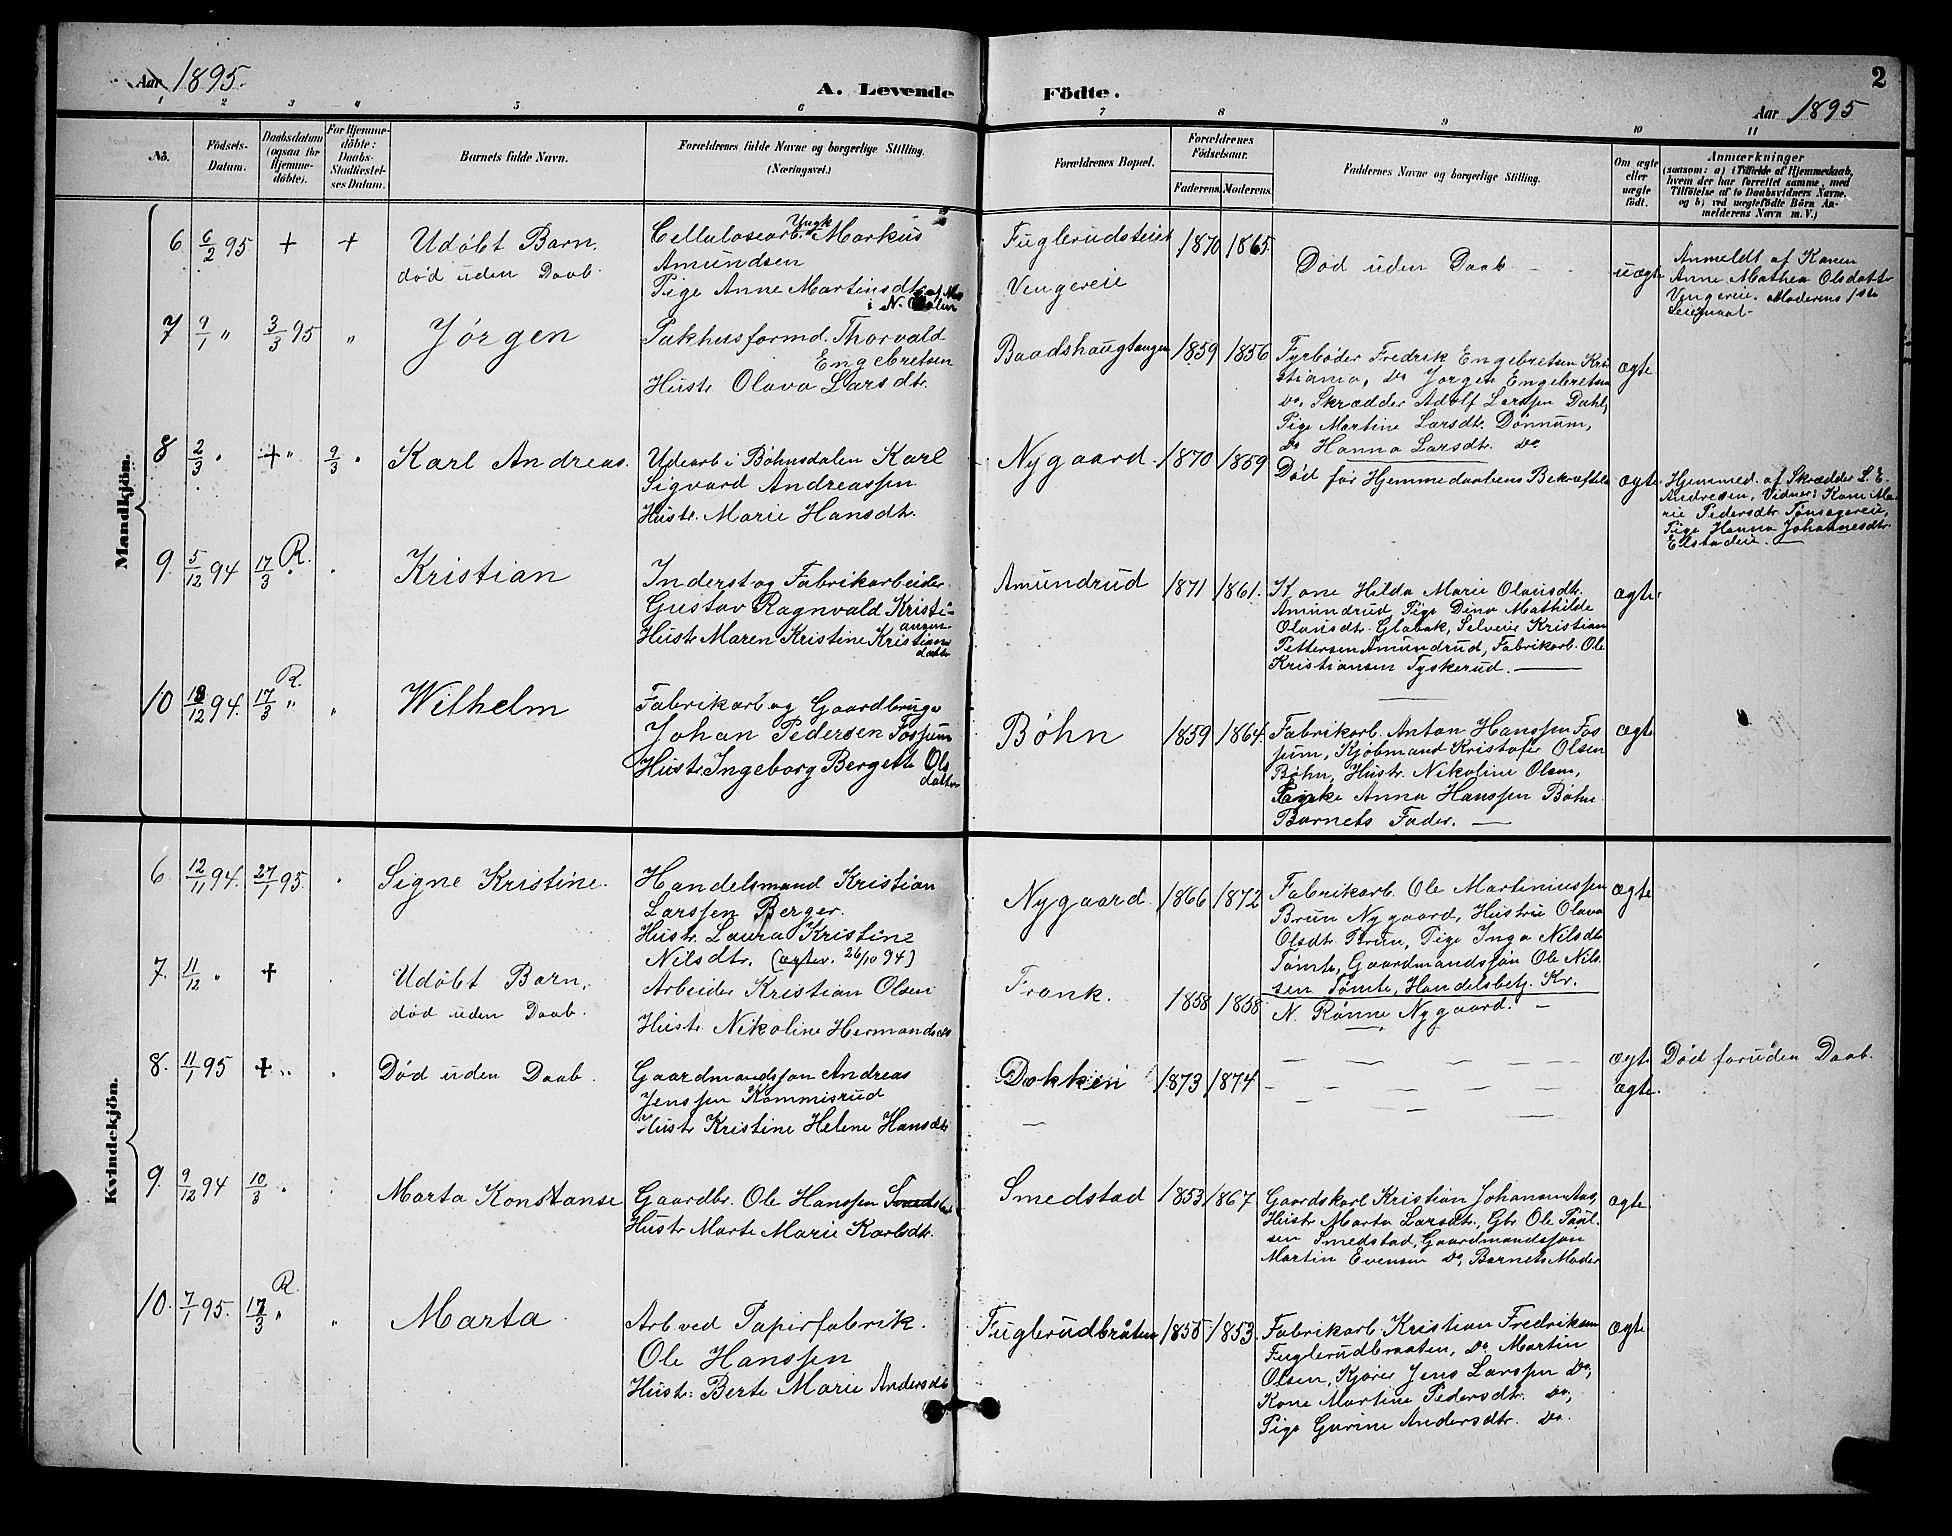 Aar 1895.
A. Levende Födte.
2
Aar 1895
1 2 3 4 5 6 7 8 9 10 11
No.
Födsels-
Datum.
Daabsdatum
(ogsaa for
Hjemme-
döbte).
For Hjemme-
döbte:
Daabs-
Stadfæstel-
ses Datum.
Barnets fulde Navn.
Forældrenes fulde Navne og borgerlige Stilling.
(Næringsvei.)
Forældrenes Bopæl.
Forældrenes
Födselsaar.
Faderens. Moderens.
Faddernes Navne og borgerlige Stilling.
Om ægte
eller
uægte
født.
Anmærkninger
(saasom: a) i Tilfælde af Hjemmedaab,
hvem der har forrettet samme, med
Tilföielse af to Daabsvidners Navne,
og b) ved uægtefödte Börn An-
melderens Navn m. V.)
Mandkjön.
6 6/2 95 + +
Udøbt Barn,
død uden Daab.
Cellulosearb. Ungk. Markus
Amundsen
Pige Anne Martinsdtr.
Fuglerudsteiet
Vengereie
1870 1865
Død uden Daab
uægte
Anmeldt af Konen
Anne Mathea Olsdattr
Vengereie. Moderens 1ste
Leiermaal
7 9/1 " 3/3 95 "
Jørgen
Pakhusformd. Thorvald
Engebretsen
Hustr. Olava Larsdtr.
Baadshaugtangen
1859 1856
Fyrbøder Fredrik Engebretsen Kri-
stiania, Do Jørgen Engebretsen
Do, Skrædder Adolf Larssen Dahl,
Pige Martine Larsdtr. Dønnum,
Do Hanna Larsdtr. Do
ægte
8 2/3 " + " 9/3 "
Karl Andreas.
Udearb i Bøhnsdalen Karl
Sigvard Andreassen
Hustr. Marie Hansdtr.
Nygaard
1870 1859
Død før Hjemmedaabens Bekræftelse
ægte.
Hjemmed. af Skrædder L. E.
Andresen, Vidner: Kone Ma-
rie Pedersdtr. Tønsagereie,
Pige Hanna Johannesdtr.
Elstadeie.
9. 5/12 94 17/3 R. "
Kristian
Inderst og Fabrikarbeider
Gustav Ragnvald Kristi-
ansen
Hustr Maren Kristine Kristians
dattr
Amundrud
1871 1861.
Kone Hilda Marie Olausdtr.
Amundrud, Pige Dina Mathilde
Olausdtr. Globak, Selveier Kristian
Pettersen Amundrud, Fabrikarb. Ole
Kristiansen Tyskerud.
ægte.
10 18/12 94. 17/3 R. " "
Wilhelm
Fabrikarb og Gaardbruger
Johan Pedersen Fossum
Hustr. Ingeborg Bergette Ols
datter
Bøhn
1859 1864.
Fabrikarb. Anton Hanssen Fos-
sum, Kjøbmand Kristofer Olsen
Bøhn, Hustr. Nikoline Olsen,
Anna Hanssen Bøhn
Barnets Fader.
ægte
Kvindekjön.
6 12/11 94. 27/1 95. "
Signe Kristine.
Handelsmand Kristian
Larssen Berger.
Hustr. Laura Kristine
Nilsdtr. (ægtev. 26/10 94)
Nygaard.
1866 1872
Fabrikarb. Ole Martiniussen
Brun Nygaard, Hustru Olava
Olsdtr. Brun, Pige Inga Nilsdtr
Tømte, Gaardmandssøn Ole Nils-
sen Tømte, Handelsbetj. Kr.
N. Rønne Nygaard.
ægte
7. 11/12 " +
Udøbt Barn,
død uden Daab.
Arbeider Kristian Olsen
Hustr Nikoline Hermandsdtr
Frank.
1858 1858
ægte
8. 11/1 95 + "
Død uden Daab.
Gaardmandssøn Andreas
Jenssen Kommisrud
Hustr Kristine Helene Hansdtr
Dokken
1873 1874
ægte.
Død foruden Daab.
9. 9/12 94 10/3 "
Marta Konstanse
Gaardbr. Ole Hanssen
Hustr Marte Marie Karlsdtr.
Smedstad
1853 1867
Gaardskarl Kristian Johansen Aas,
Hustr Marta Larsdtr., Gbr Ole Paul-
sen Smedstad, Gaardmandssøn
Martin Evensen Do, Barnets Moder
ægte.
10. 7/1 95. 17/3 R. " "
Marta
Arb ved Papirfabrik.
Ole Hanssen
Hustr. Berte Marie Andersdtr
Fuglerudbråten
1855 1853.
Fabrikarb Kristian Fredriksen
Fuglerudbraaten, Do Martin
Olsen, Kjører Jens Larssen Do,
Kone Martine Pedersdtr. Do,
Pige Gurine Andersdtr. Do.
ægte